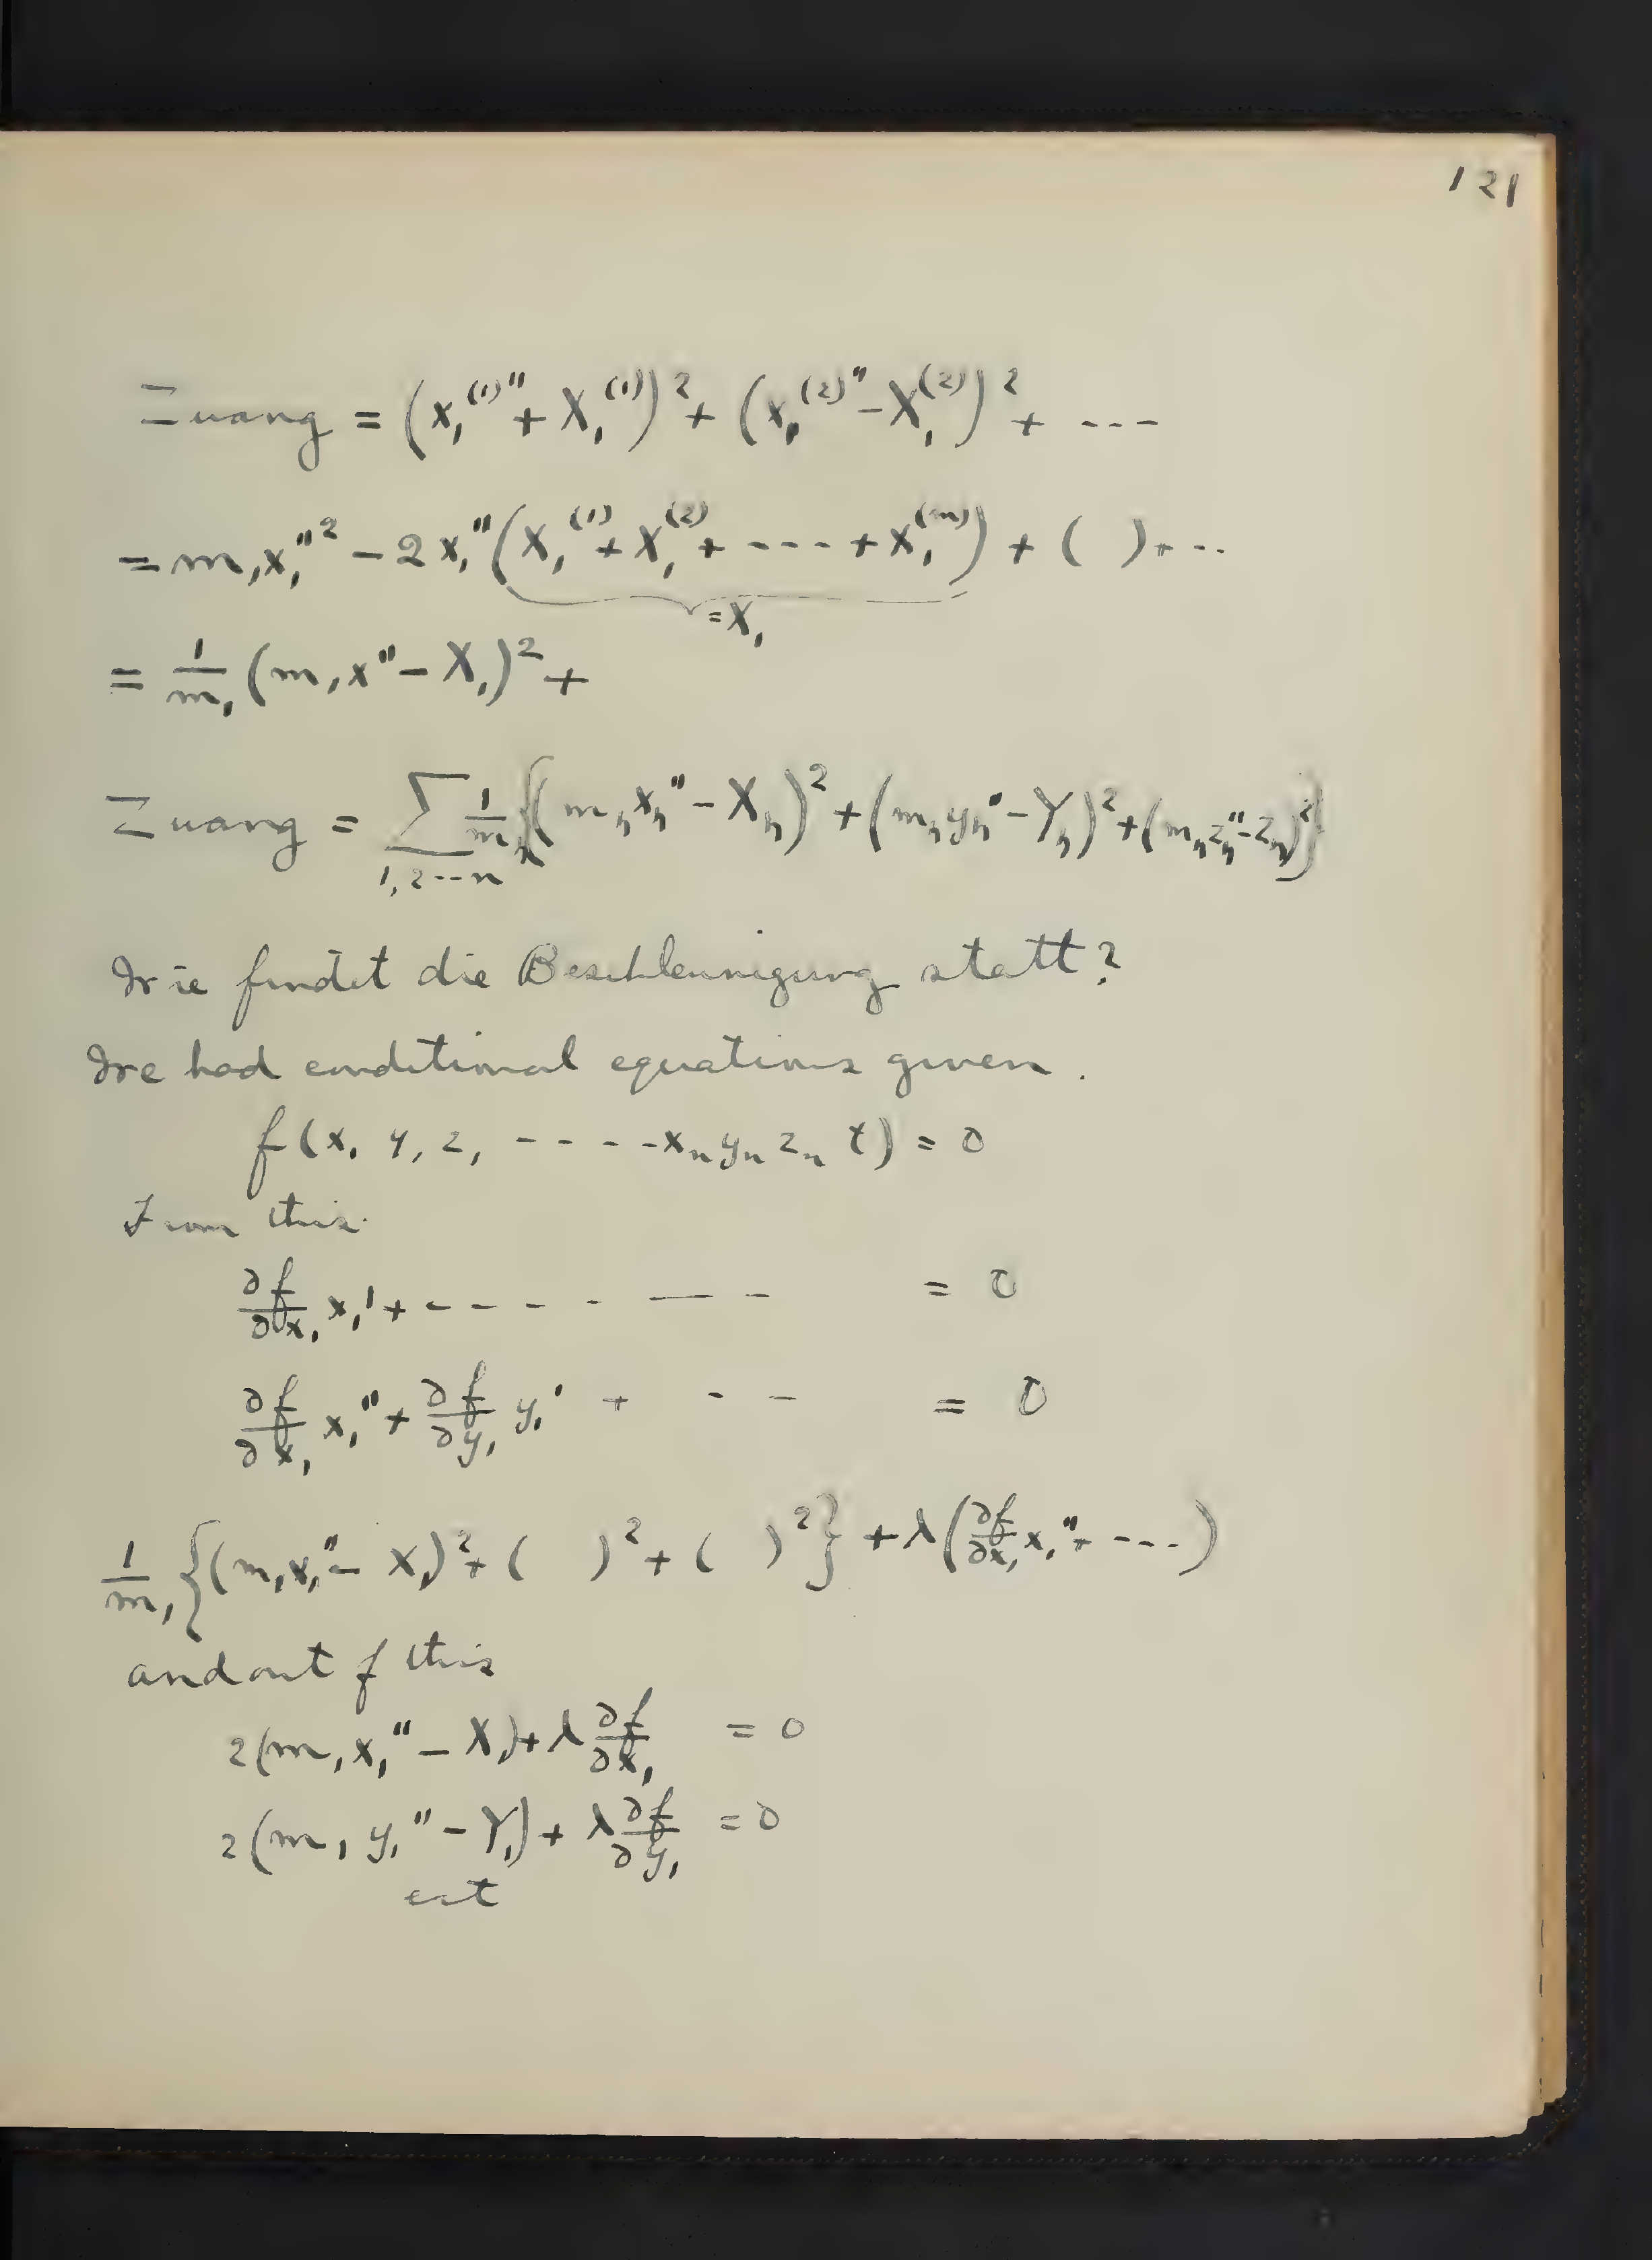 121
Zwang = (x₁⁽¹⁾″ + X₁⁽¹⁾)² + (x₁⁽²⁾″ − X₁⁽²⁾)² + ---
= m₁x₁″² − 2x₁″(X₁⁽¹⁾ + X₁⁽²⁾ + ---- + X₁⁽ᵐ⁾) + ( ) + --
= X₁
= 1/m₁ (m₁x″ − X₁)² +
Zwang = ∑ 1/mₙ {(mₙxₙ″ − Xₙ)² + (mₙyₙ″ − Yₙ)² + (mₙzₙ″ − Zₙ)²}
1, 2 --- n
Wie findet die Beschleunigung statt?
We had conditional equations given.
f(x₁ y₁ z₁ ----- xₙ yₙ zₙ t) = 0
From this
∂f/∂x₁ x₁′ + ------ = 0
∂f/∂x₁ x₁″ + ∂f/∂y₁ y₁′ + -- = 0
1/m₁ {(m₁x₁″ − X₁)² + ( )² + ( )²} + λ(∂f/∂x₁ x₁″ + ----)
and out of this
2(m₁x₁″ − X₁) + λ ∂f/∂x₁ = 0
2(m₁y₁″ − Y₁) + λ ∂f/∂y₁ = 0